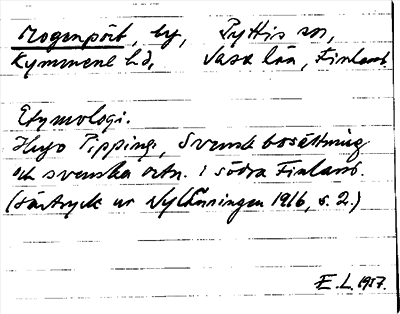 Mogenpört, by, Pyttis sn,
Kymmene hd, Vasa län, Finland.
Etymologi.
Hugo Pipping, Svensk bosättning
och svenska ortn. i södra Finland.
(Särtryck ur Nylänningen 1916, s. 2.)
E. L. 1957.